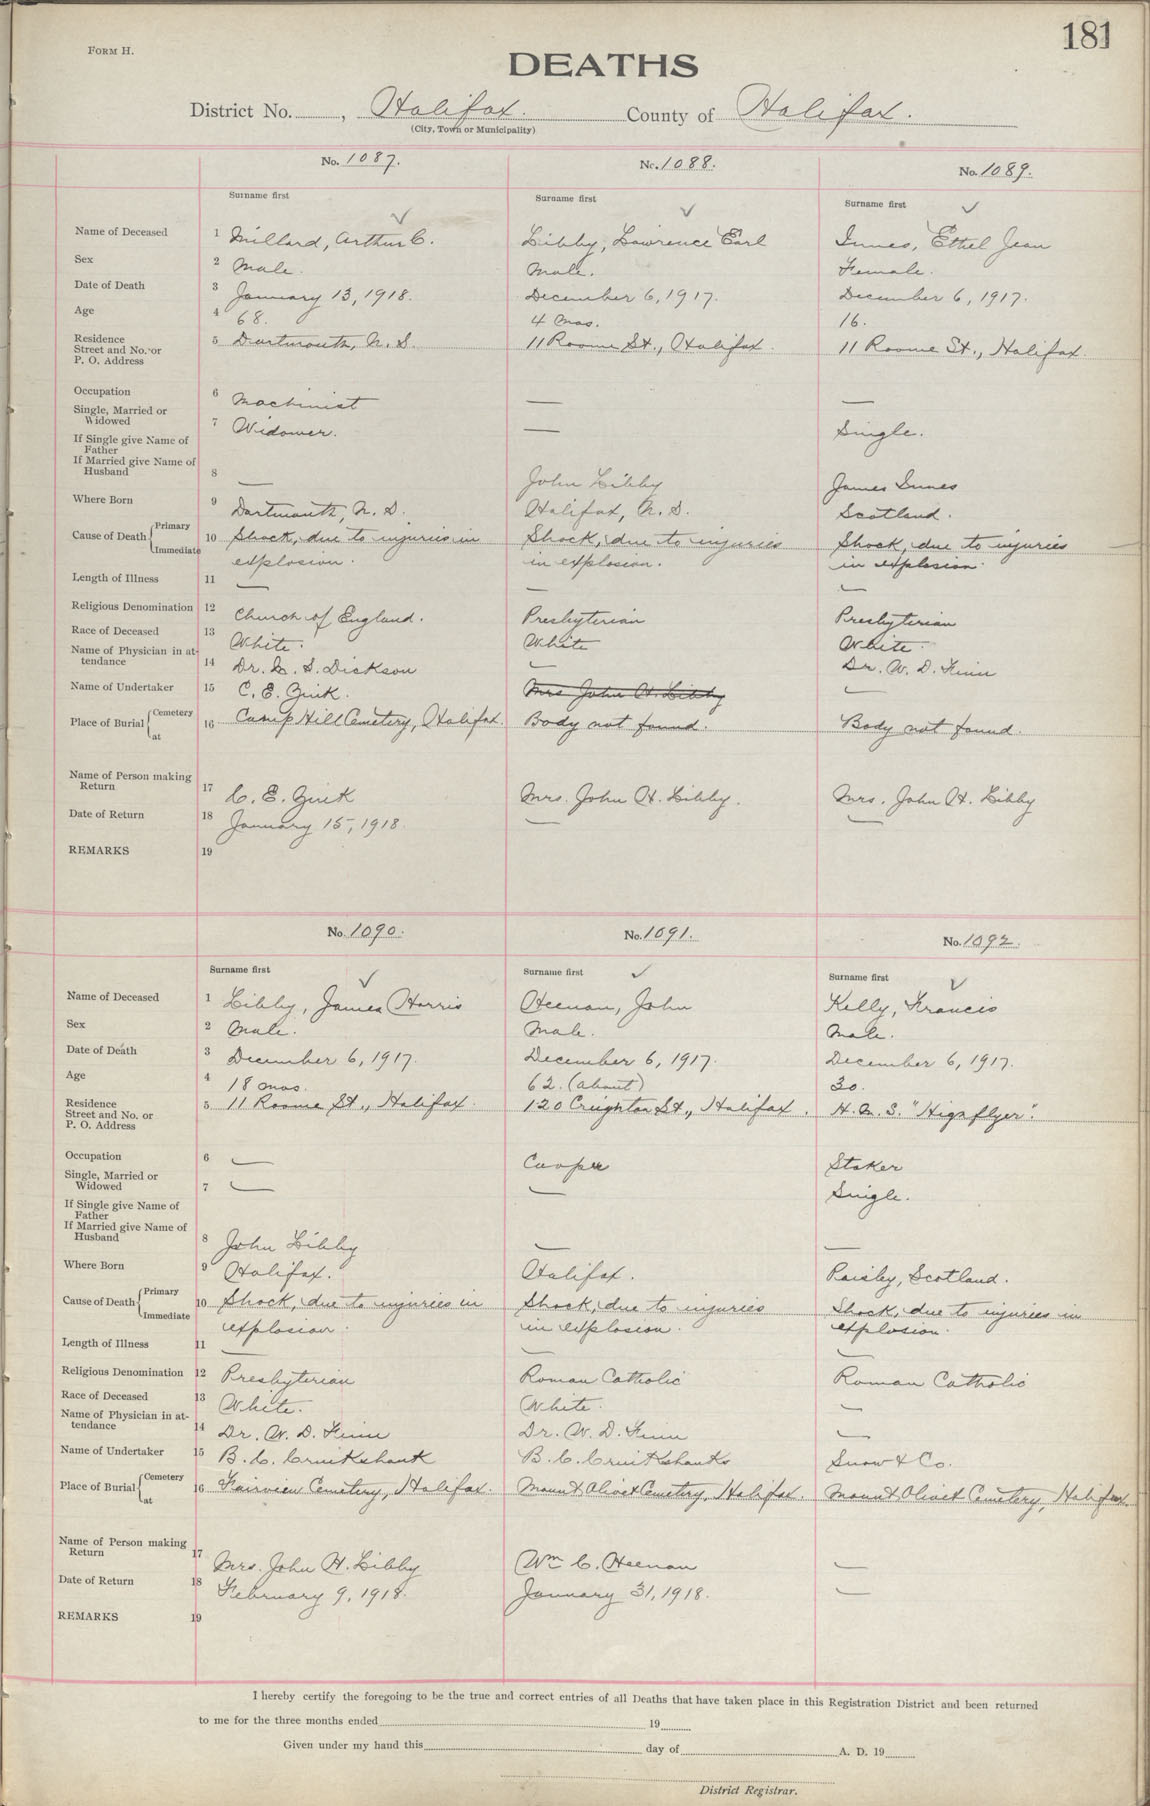 181
FORM H.
DEATHS
District No. , Halifax. County of Halifax.
(City, Town or Municipality)
No. 1087. No. 1088. No. 1089.
Surname first Surname first Surname first
Name of Deceased 1 Millard, Arthur C. Libby, Lawrence Earl Innes, Ethel Jean
Sex 2 Male. Male. Female.
Date of Death 3 January 13, 1918. December 6, 1917. December 6, 1917.
Age 4 68. 4 mos. 16.
Residence
Street and No. or 5 Dartmouth, N.S. 11 Roome St., Halifax. 11 Roome St., Halifax.
P. O. Address
Occupation 6 Machinist — —
Single, Married or
Widowed 7 Widower. — Single.
If Single give Name of
Father
If Married give Name of
Husband 8 — John Libby James Innes
Where Born 9 Dartmouth, N.S. Halifax, N.S. Scotland.
Cause of Death Primary
Immediate 10 Shock, due to injuries in Shock, due to injuries Shock, due to injuries
explosion. in explosion. in explosion.
Length of Illness 11 — — —
Religious Denomination 12 Church of England. Presbyterian Presbyterian
Race of Deceased 13 White. White White.
Name of Physician in at-
tendance 14 Dr. M. S. Dickson — Dr. W. D. Finn
Name of Undertaker 15 C. E. Zink. Mrs John H. Libby —
Place of Burial Cemetery
at 16 Camp Hill Cemetery, Halifax. Body not found. Body not found.
Name of Person making
Return 17 C. E. Zink Mrs. John H. Libby. Mrs. John H. Libby
Date of Return 18 January 15, 1918. — —
REMARKS 19
No. 1090. No. 1091. No. 1092.
Surname first Surname first Surname first
Name of Deceased 1 Libby, James Harris Heenan, John Kelly, Francis
Sex 2 Male. Male. Male.
Date of Death 3 December 6, 1917. December 6, 1917. December 6, 1917.
Age 4 18 mos. 62. (about) 30.
Residence
Street and No. or 5 11 Roome St., Halifax. 120 Creighton St., Halifax. H.M.S. "Highflyer".
P. O. Address
Occupation 6 — Cooper Stoker
Single, Married or
Widowed 7 — — Single.
If Single give Name of
Father
If Married give Name of
Husband 8 John Libby — —
Where Born 9 Halifax. Halifax. Paisley, Scotland.
Cause of Death Primary
Immediate 10 Shock, due to injuries in Shock, due to injuries Shock, due to injuries in
explosion. in explosion. explosion.
Length of Illness 11 — — —
Religious Denomination 12 Presbyterian Roman Catholic Roman Catholic
Race of Deceased 13 White. White. —
Name of Physician in at-
tendance 14 Dr. W. D. Finn Dr. W. D. Finn —
Name of Undertaker 15 B. C. Cruikshank B. C. Cruikshanks Snow & Co.
Place of Burial Cemetery
at 16 Fairview Cemetery, Halifax. Mount Olivet Cemetery, Halifax. Mount Olivet Cemetery, Halifax.
Name of Person making
Return 17 Mrs. John H. Libby Wm C. Heenan —
Date of Return 18 February 9, 1918. January 31, 1918. —
REMARKS 19
I hereby certify the foregoing to be the true and correct entries of all Deaths that have taken place in this Registration District and been returned
to me for the three months ended 19
Given under my hand this day of A. D. 19
District Registrar.